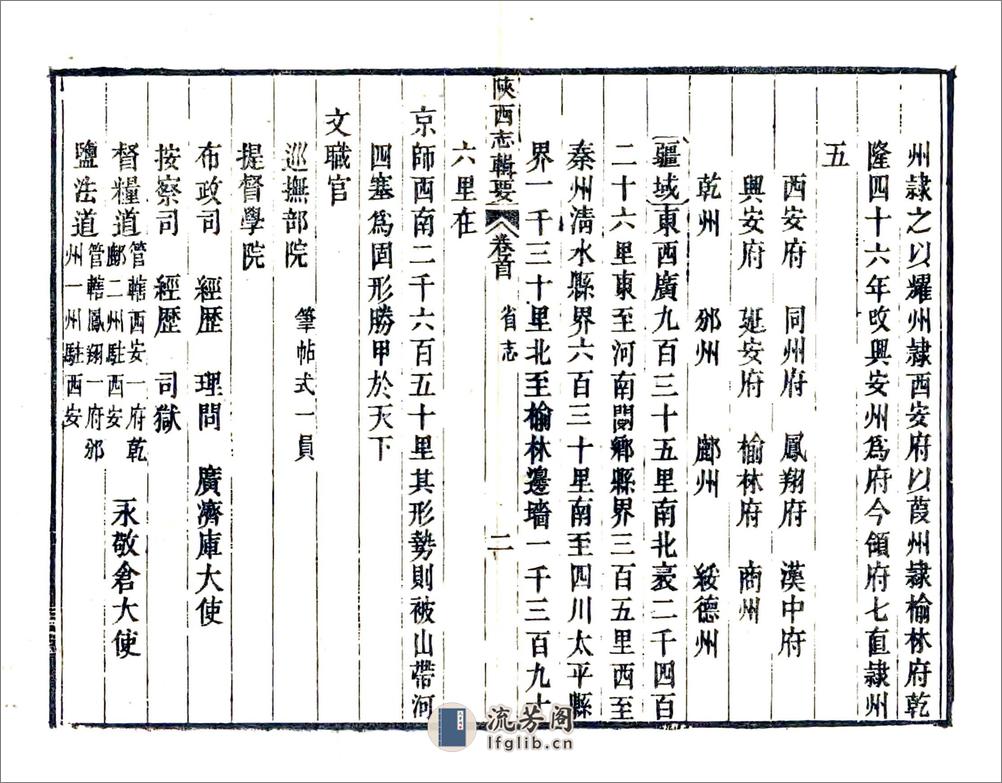 州隸之以耀州隸西安府以葭州隸榆林府乾
隆四十六年改興安州爲府今領府七直隸州
五
西安府 同州府 鳳翔府 漢中府
興安府 延安府 榆林府 商州
乾州 邠州 鄜州 綏德州
疆域 東西廣九百三十五里南北袤二千四百
二十六里東至河南閿鄉縣界三百五里西至
秦州清水縣界六百三十里南至四川太平縣
界一千三十里北至榆林邊墻一千三百九十
陝西志輯要 卷首 省志 二
六里在
京師西南二千六百五十里其形勢則被山帶河
四塞爲固形勝甲於天下
文職官
巡撫部院 筆帖式一員
提督學院
布政司 經歷 理問 廣濟庫大使
按察司 經歷 司獄
督糧道 管轄西安一府乾
鄜二州駐西安 永敬倉大使
鹽法道 管轄鳳翔一府邠
州一州駐西安
流芳阁
lfglib.cn